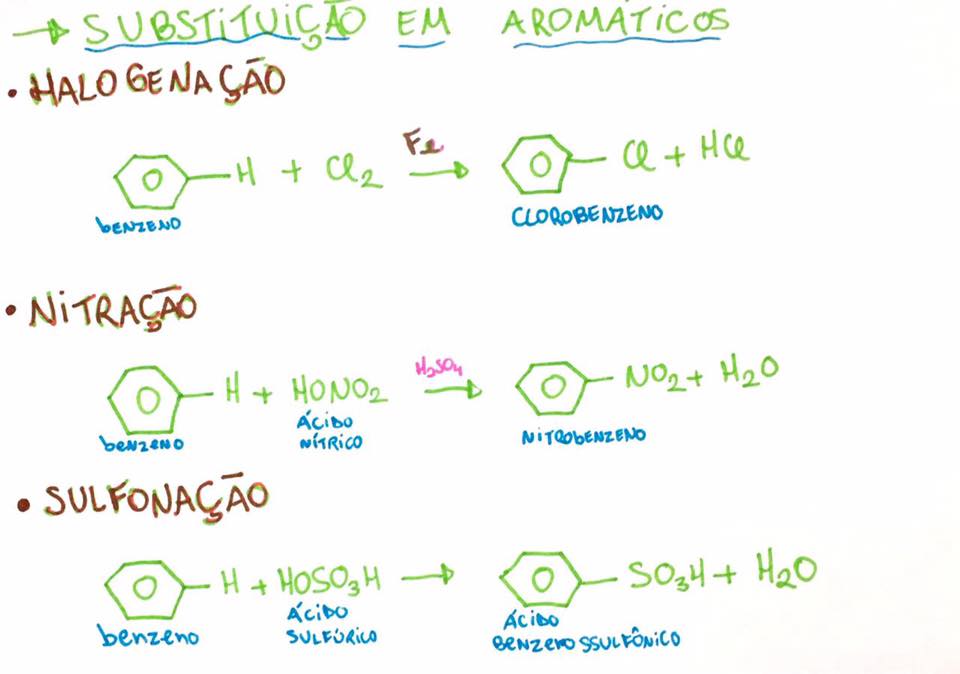 → SUBSTITUIÇÃO EM AROMÁTICOS
• HALOGENAÇÃO
H + Cl2 Fe → Cl + HCl
benzeno CLOROBENZENO
• NITRAÇÃO
H + HONO2 H2SO4 → NO2 + H2O
benzeno ÁCIDO NITROBENZENO
NÍTRICO
• SULFONAÇÃO
H + HOSO3H → SO3H + H2O
benzeno ÁCIDO ÁCIDO
SULFÚRICO BENZENOSSULFÔNICO